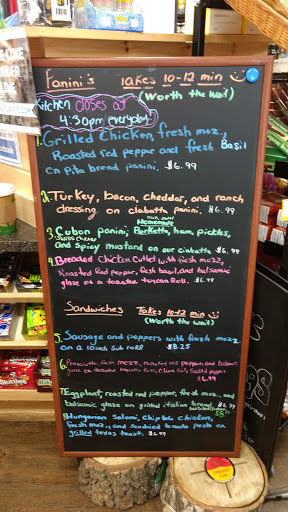 Panini's Takes 10-12 min
(Worth the wait)
Kitchen closes at
4:30pm everyday!
1. Grilled Chicken, fresh moz.,
Roasted red pepper and fresh Basil
on pita bread panini. $6.99
2. Turkey, bacon, cheddar, and ranch
dressing on ciabatta panini. $6.99
our own
Homemade
3. Cuban panini; Porketta, ham, pickles,
Swiss cheese
and spicy mustard on our ciabatta $6.99
4. Breaded Chicken Cutlet with fresh mozz,
Roasted Red pepper, fresh basil, and balsamic
glaze on a toasted tuscan Roll. $6.99
Sandwiches Takes 10-12 min
(Worth the wait)
5. Sausage and peppers with fresh mozz
on a 10inch sub roll $8.25
6. Prosciutto, fresh mozz, roasted red pepper and balsamic
glaze on
$6.99
7. Eggplant, roasted red pepper, fresh moz., and
balsamic glaze on grilled italian bread $6.99
8. Hungarian Salami, Chipotle chicken,
fresh moz., and sundried tomato pesto on
grilled texas toast. $6.99